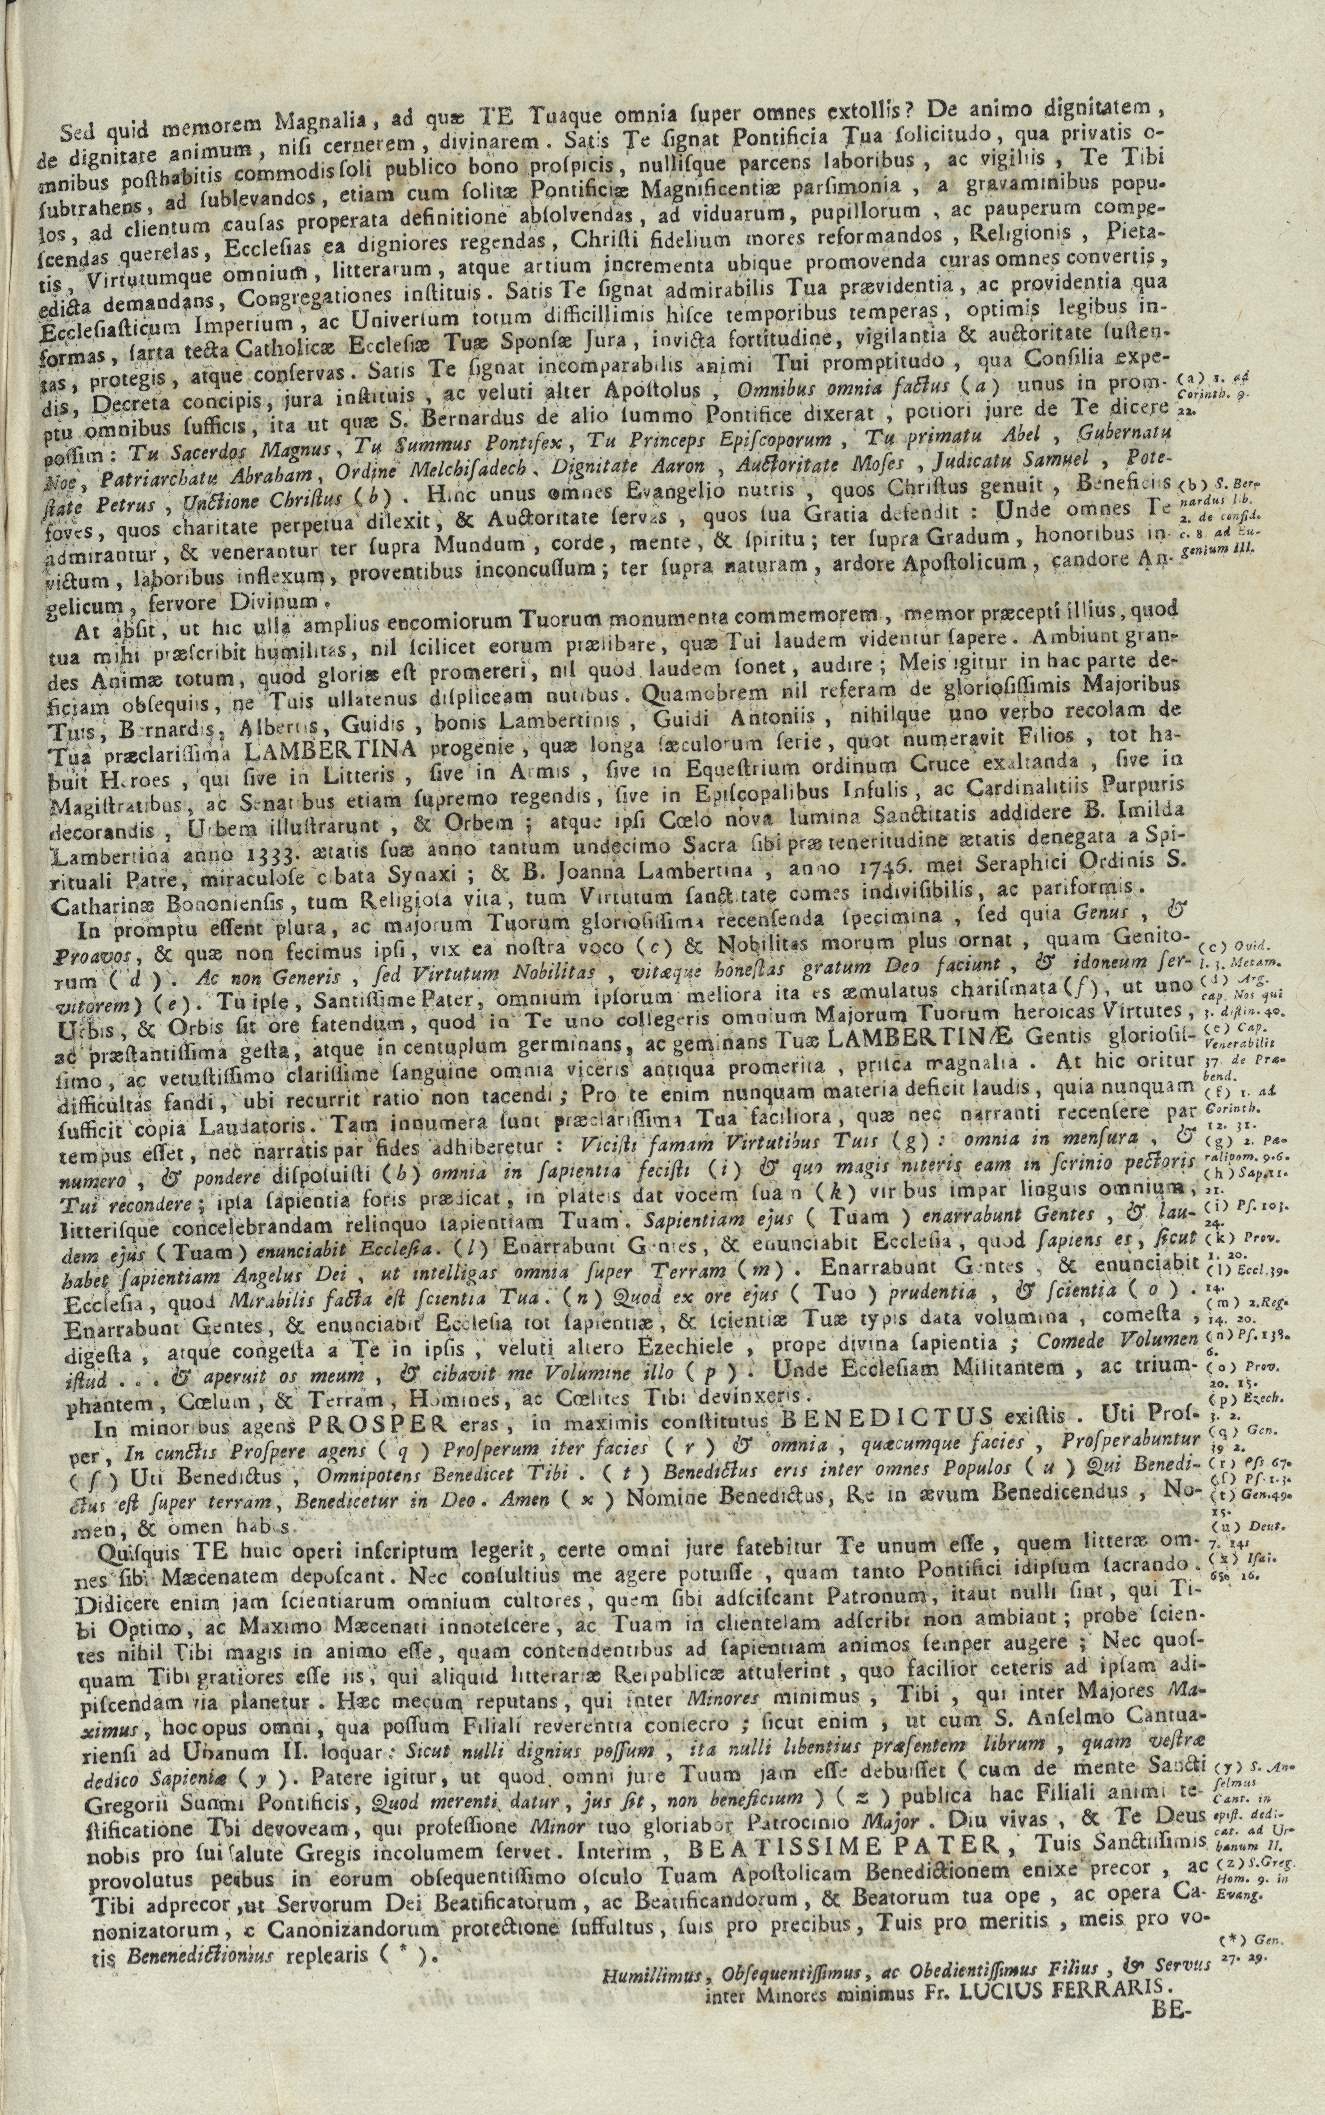 Sed quid memorem Magnalia, ad quæ TE Tuaque omnia ſuper omnes extollis? De animo dignitatem,
de dignitate animum, niſi cernerem, divinarem. Satis Te ſignat Pontificia Tua ſolicitudo, qua privatis o-
mnibus poſthabitis commodis ſoli publico bono proſpicis, nulliſque parcens laboribus, ac vigiliis, Te Tibi
ſubtrahens, ad ſublevandos, etiam cum ſolitæ Pontificiæ Magnificentiæ parſimonia, a gravaminibus popu-
los, ad clientum cauſas properata definitione abſolvendas, ad viduarum, pupillorum, ac pauperum compe-
ſcendas querelas, Eccleſias ea digniores regendas, Chriſti fidelium mores reformandos, Religionis, Pieta-
tis, Virtutumque omnium, litterarum, atque artium incrementa ubique promovenda curas omnes convertis,
edicta demandans, Congregationes inſtituis. Satis Te ſignat admirabilis Tua prævidentia, ac providentia qua
Eccleſiaſticum Imperium, ac Univerſum totum difficillimis hiſce temporibus temperas, optimis legibus in-
formas, ſarta tecta Catholicæ Eccleſiæ Tuæ Sponſæ Jura, invicta fortitudine, vigilantia & auctoritate ſuſten-
tas, protegis, atque conſervas. Satis Te ſignat incomparabilis animi Tui promptitudo, qua Conſilia expe-
dis, Decreta concipis, jura inſtituis, ac veluti alter Apoſtolus, Omnibus omnia factus (a) unus in prom-
ptu omnibus ſufficis, ita ut quæ S. Bernardus de alio ſummo Pontifice dixerat, potiori jure de Te dicere
poſſim: Tu Sacerdos Magnus, Tu Summus Pontifex, Tu Princeps Epiſcoporum, Tu primatu Abel, Gubernatu
Noe, Patriarchatu Abraham, Ordine Melchiſadech. Dignitate Aaron, Auctoritate Moſes, Judicatu Samuel, Pote-
ſtate Petrus, Unctione Chriſtus (b). Hinc unus omnes Evangelio nutris, quos Chriſtus genuit, Beneficiis
foves, quos charitate perpetua dilexit, & Auctoritate ſervas, quos ſua Gratia defendit: Unde omnes Te
admirantur, & venerantur ter ſupra Mundum, corde, mente, & ſpiritu; ter ſupra Gradum, honoribus in-
victum, laboribus inflexum, proventibus inconcuſſum; ter ſupra naturam, ardore Apoſtolicum, candore An-
gelicum, fervore Divinum.
At abſit, ut hic ulla amplius encomiorum Tuorum monumenta commemorem, memor præcepti illius, quod
tua mihi præſcribit humilitas, nil ſcilicet eorum prælibare, quæ Tui laudem videntur ſapere. Ambiunt gran-
des Animæ totum, quod gloriæ eſt promereri, nil quod laudem ſonet, audire; Meis igitur in hac parte de-
ficiam obſequiis, ne Tuis ullatenus diſpliceam nutibus. Quamobrem nil referam de glorioſiſſimis Majoribus
Tuis, Bernardis, Albertis, Guidis, bonis Lambertinis, Guidi Antoniis, nihilque uno verbo recolam de
Tua præclariſſima LAMBERTINA progenie, quæ longa ſæculorum ſerie, quot numeravit Filios, tot ha-
buit Heroes, qui ſive in Litteris, ſive in Armis, ſive in Equeſtrium ordinum Cruce exaltanda, ſive in
Magiſtratibus, ac Senatibus etiam ſupremo regendis, ſive in Epiſcopalibus Infulis, ac Cardinalitiis Purpuris
decorandis, Urbem illuſtrarunt, & Orbem; atque ipſi Cœlo nova lumina Sanctitatis addidere B. Imilda
Lambertina anno 1333. ætatis ſuæ anno tantum undecimo Sacra ſibi præ teneritudine ætatis denegata a Spi-
rituali Patre, miraculoſe cibata Synaxi; & B. Joanna Lambertina, anno 1746. mei Seraphici Ordinis S.
Catharinæ Bononienſis, tum Religioſa vita, tum Virtutum ſanctitate comes indiviſibilis, ac pariformis.
In promptu eſſent plura, ac majorum Tuorum glorioſiſſima recenſenda ſpecimina, ſed quia Genus, &
Proavos, & quæ non fecimus ipſi, vix ea noſtra voco (c) & Nobilitas morum plus ornat, quam Genito-
rum (d). Ac non Generis, ſed Virtutum Nobilitas, vitæque honeſtas gratum Deo faciunt, & idoneum ſer-
vitorem) (e). Tu ipſe, Santiſſime Pater, omnium ipſorum meliora ita es æmulatus chariſmata (f), ut uno
Urbis, & Orbis ſit ore fatendum, quod in Te uno collegeris omnium Majorum Tuorum heroicas Virtutes,
ac præſtantiſſima geſta, atque in centuplum germinans, ac geminans Tuæ LAMBERTINÆ Gentis glorioſiſ-
ſimo, ac vetuſtiſſimo clariſſime ſanguine omnia viceris antiqua promerita, priſca magnalia. At hic oritur
difficultas fandi, ubi recurrit ratio non tacendi; Pro te enim nunquam materia deficit laudis, quia nunquam
ſufficit copia Laudatoris. Tam innumera ſunt præclariſſima Tua faciliora, quæ nec narranti recenſere par
tempus eſſet, nec narratis par fides adhiberetur: Viciſti famam Virtutibus Tuis (g): omnia in menſura, &
numero, & pondere diſpoſuiſti (h) omnia in ſapientia feciſti (i) & quo magis niteris eam in ſcrinio pectoris
Tui recondere; ipſa ſapientia foris prædicat, in plateis dat vocem ſuam (k) viribus impar linguis omnium,
litteriſque concelebrandam relinquo ſapientiam Tuam. Sapientiam ejus (Tuam) enarrabunt Gentes, & lau-
dem ejus (Tuam) enunciabit Eccleſia. (l) Enarrabunt Gentes, & enunciabit Eccleſia, quod ſapiens es, ſicut
habet ſapientiam Angelus Dei, ut intelligas omnia ſuper Terram (m). Enarrabunt Gentes, & enunciabit
Eccleſia, quod Mirabilis facta eſt ſcientia Tua. (n) Quod ex ore ejus (Tuo) prudentia, & ſcientia (o).
Enarrabunt Gentes, & enunciabit Eccleſia tot ſapientiæ, & ſcientiæ Tuæ typis data volumina, comeſta,
digeſta, atque congeſta a Te in ipſis, veluti altero Ezechiele, prope divina ſapientia; Comede Volumen
iſtud... & aperuit os meum, & cibavit me Volumine illo (p). Unde Eccleſiam Militantem, ac trium-
phantem, Cœlum, & Terram, Homines, ac Cœlites Tibi devinxeris.
In minoribus agens PROSPER eras, in maximis conſtitutus BENEDICTUS exiſtis. Uti Proſ-
per, In cunctis Proſpere agens (q) Proſperum iter facies (r) & omnia, quæcumque facies, Proſperabuntur
(ſ) Uti Benedictus, Omnipotens Benedicet Tibi. (t) Benedictus eris inter omnes Populos (u) Qui Benedi-
ctus eſt ſuper terram, Benedicetur in Deo. Amen (x) Nomine Benedictus, Re in ævum Benedicendus, No-
men, & omen habes.
Quiſquis TE huic operi inſcriptum legerit, certe omni jure fatebitur Te unum eſſe, quem litteræ om-
nes ſibi Mæcenatem depoſcant. Nec conſultius me agere potuiſſe, quam tanto Pontifici idipſum ſacrando.
Didicere enim jam ſcientiarum omnium cultores, quem ſibi adſciſcant Patronum, itaut nulli ſint, qui Ti-
bi Optimo, ac Maximo Mæcenati innoteſcere, ac Tuam in clientelam adſcribi non ambiant; probe ſcien-
tes nihil Tibi magis in animo eſſe, quam contendentibus ad ſapientiam animos ſemper augere; Nec quoſ-
quam Tibi gratiores eſſe iis, qui aliquid litterariæ Reipublicæ attulerint, quo facilior ceteris ad ipſam adi-
piſcendam via planetur. Hæc mecum reputans, qui inter Minores minimus, Tibi, qui inter Majores Ma-
ximus, hoc opus omni, qua poſſum Filiali reverentia conſecro; ſicut enim, ut cum S. Anſelmo Cantua-
rienſi ad Urbanum II. loquar: Sicut nulli dignius poſſum, ita nulli libentius præſentem librum, quam veſtræ
dedico Sapieniæ (y). Patere igitur, ut quod omni jure Tuum jam eſſe debuiſſet (cum de mente Sancti
Gregorii Summi Pontificis, Quod merenti datur, jus ſit, non beneficium) (z) publica hac Filiali animi te-
ſtificatione Tibi devoveam, qui profeſſione Minor tuo gloriabor Patrocinio Major. Diu vivas, & Te Deus
nobis pro ſui ſalute Gregis incolumem ſervet. Interim, BEATISSIME PATER, Tuis Sanctiſſimis
provolutus pedibus in eorum obſequentiſſimo oſculo Tuam Apoſtolicam Benedictionem enixe precor, ac
Tibi adprecor, ut Servorum Dei Beatificatorum, ac Beatificandorum, & Beatorum tua ope, ac opera Ca-
nonizatorum, c Canonizandorum protectione ſuffultus, ſuis pro precibus, Tuis pro meritis, meis pro vo-
tis Benenedictionius replearis (*).
Humillimus, Obſequentiſſimus, ac Obedientiſſimus Filius, & Servus
inter Minores minimus Fr. LUCIUS FERRARIS.
BE-
(a) 1. ad
Corinth. 9.
22.
(b) S. Ber-
nardus lib.
2. de conſid.
c. 8. ad Eu-
genium III.
(c) Ovid.
l. 3. Metam.
(d) Arg.
cap. Nos qui
3. diſtin. 40.
(e) Cap.
Venerabilis
37. de Præ-
bend.
(f) 1. ad
Corinth.
12. 31.
(g) 2. Pa-
ralipom. 9. 6.
(h) Sap. 11.
21.
(i) Pſ. 103.
24.
(k) Prov.
1. 20.
(l) Eccl. 39.
14.
(m) 2. Reg.
14. 20.
(n) Pſ. 138.
6.
(o) Prov.
20. 15.
(p) Ezech.
3. 2.
(q) Gen.
39 2.
(r) Pſ. 67.
(ſ) Pſ. 1. 3.
(t) Gen. 49.
25.
(u) Deut.
7. 14.
(x) Iſai.
65. 16.
(y) S. An-
ſelmus
Cant. in
epiſt. dedi-
cat. ad Ur-
banum II.
(z) S. Greg.
Hom. 9. in
Evang.
(*) Gen.
27. 29.